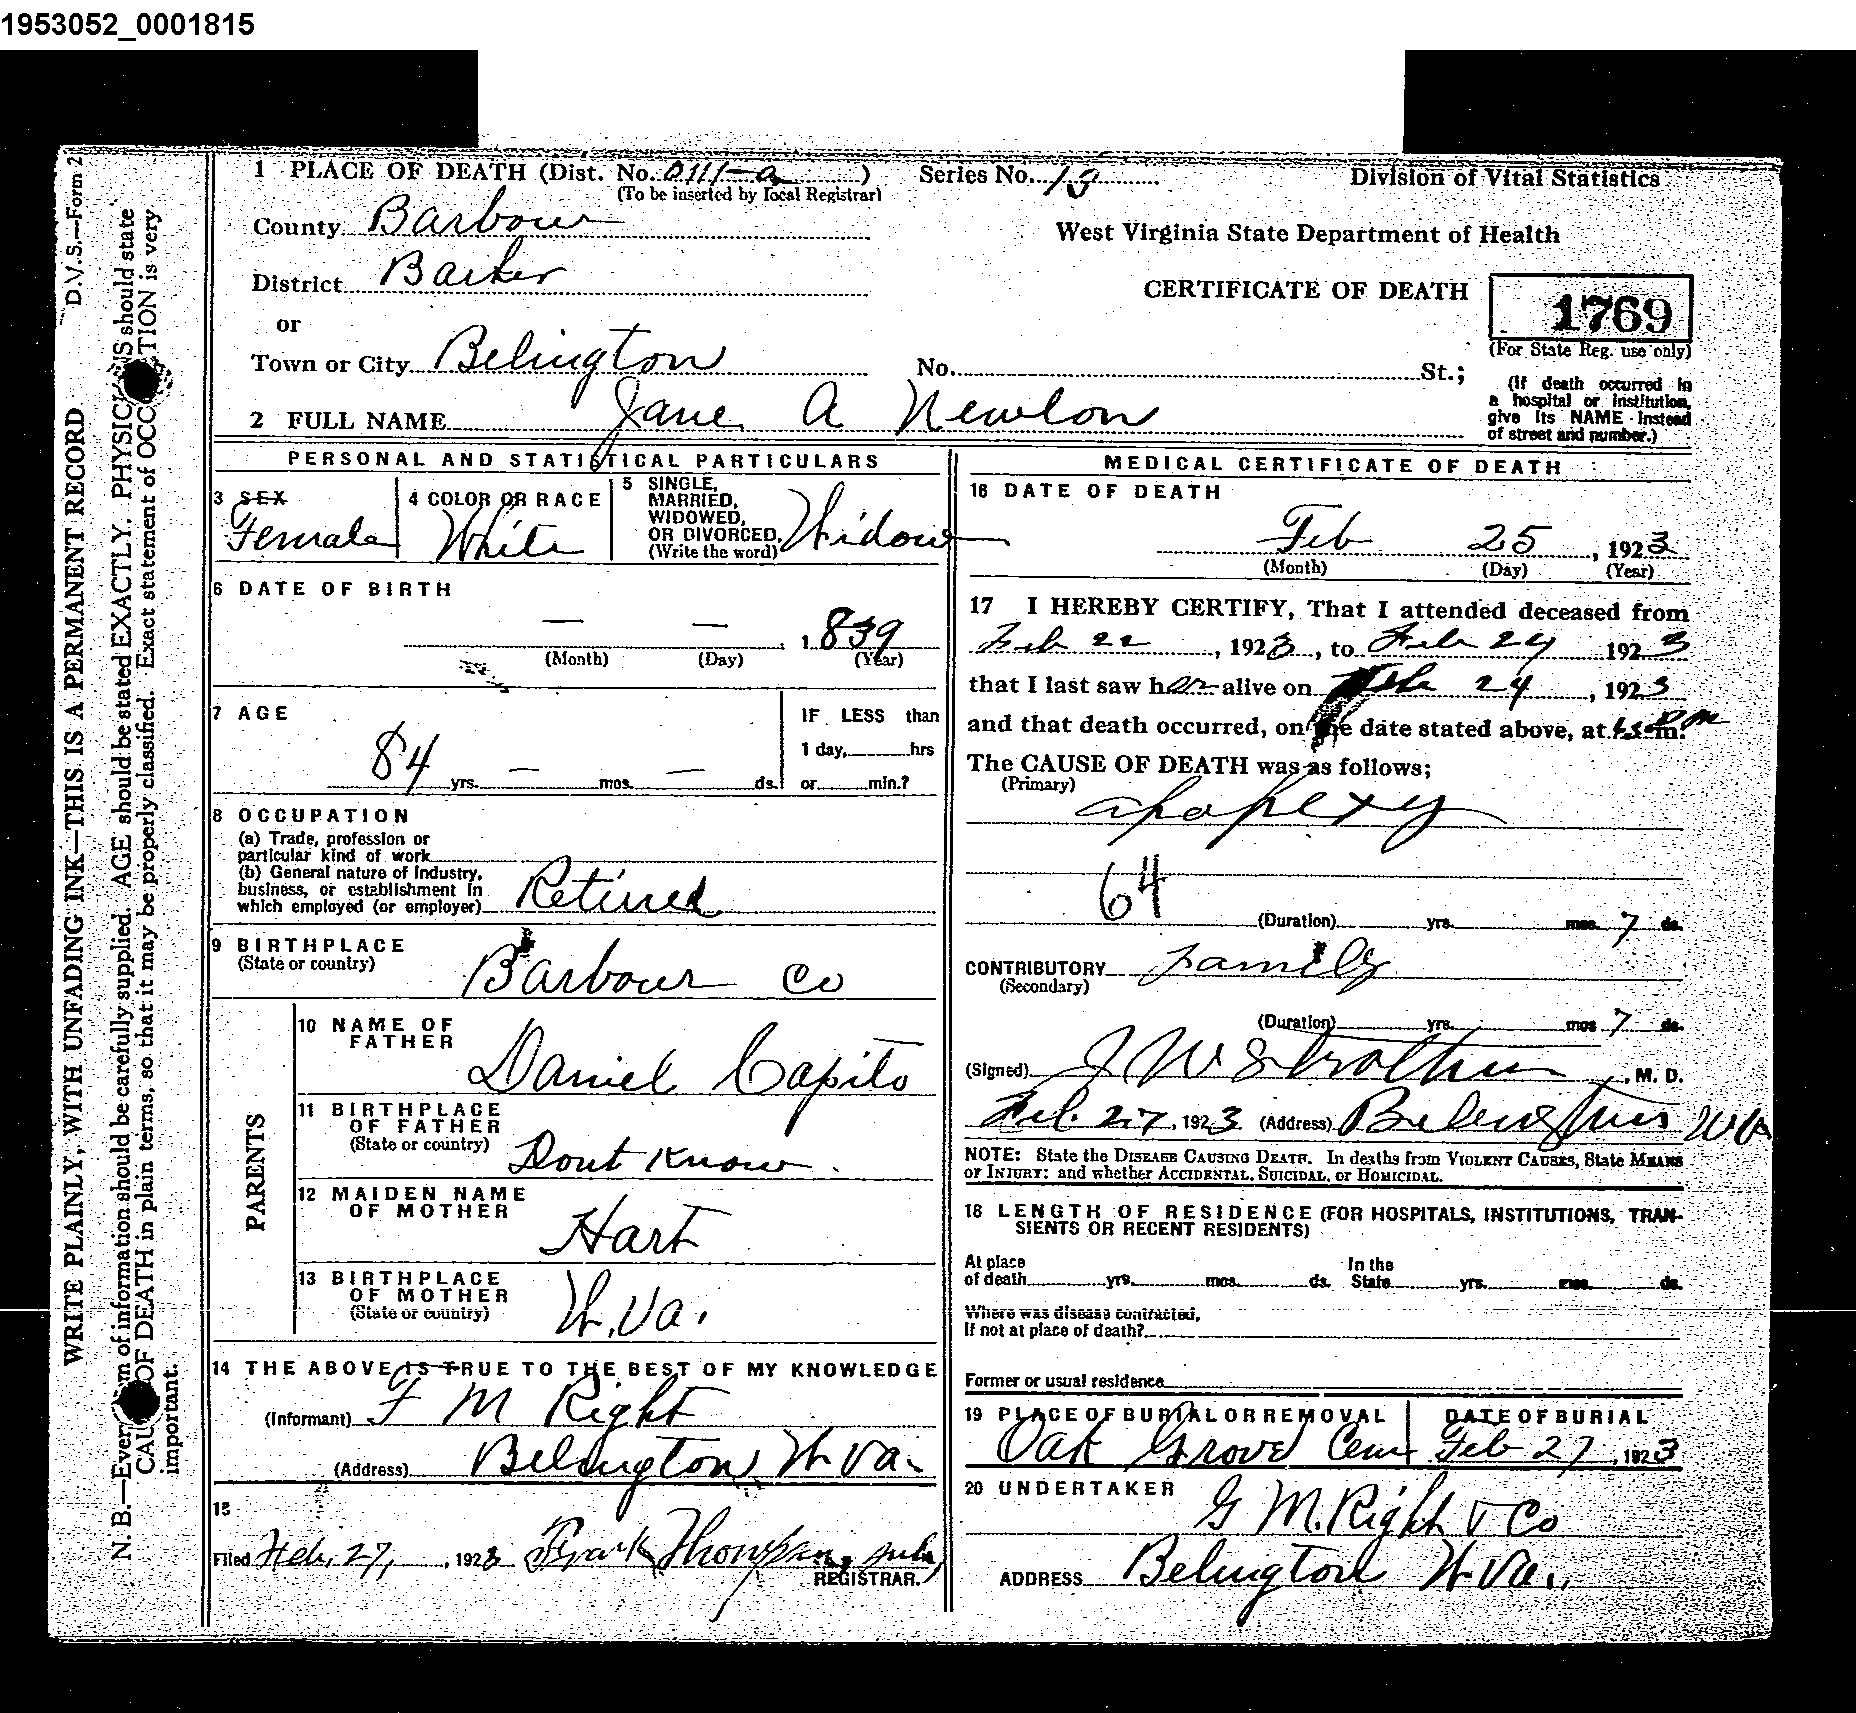 1953052_0001815
1 PLACE OF DEATH (Dist. No. 0111-a )
(To be inserted by local Registrar)
Series No. 13
Division of Vital Statistics
County Barbour
West Virginia State Department of Health
District Barker
CERTIFICATE OF DEATH
1769
(For State Reg. use only)
or
Town or City Belington
No. St.;
(If death occurred in
a hospital or institution,
give its NAME instead
of street and number.)
2 FULL NAME Jane A Newlon
PERSONAL AND STATISTICAL PARTICULARS
3 SEX
Female
4 COLOR OR RACE
White
5 SINGLE,
MARRIED,
WIDOWED,
OR DIVORCED.
(Write the word) Widow
6 DATE OF BIRTH
— — , 1839
(Month) (Day) (Year)
7 AGE
84 yrs. — mos. — ds.
IF LESS than
1 day, hrs
or min.?
8 OCCUPATION
(a) Trade, profession or
particular kind of work
(b) General nature of industry,
business, or establishment in
which employed (or employer) Retired
9 BIRTHPLACE
(State or country)
Barbour Co
PARENTS
10 NAME OF
FATHER
Daniel Capito
11 BIRTHPLACE
OF FATHER
(State or country) Dont Know.
12 MAIDEN NAME
OF MOTHER
Hart
13 BIRTHPLACE
OF MOTHER
(State or country) W.Va.
14 THE ABOVE IS TRUE TO THE BEST OF MY KNOWLEDGE
(Informant) F M Right
(Address) Belington W Va.
15
Filed Feb. 27, , 1923 Frank Thompson, sub,
REGISTRAR.
MEDICAL CERTIFICATE OF DEATH
16 DATE OF DEATH
Feb 25 , 1923
(Month) (Day) (Year)
17 I HEREBY CERTIFY, That I attended deceased from
Feb 22 , 1923 , to Feb 24 1923
that I last saw her alive on Feb 24 , 1923
and that death occurred, on the date stated above, at m.
The CAUSE OF DEATH was as follows;
(Primary)
apoplexy
64
(Duration) yrs. mos. 7 ds.
CONTRIBUTORY Family
(Secondary)
(Duration) yrs. mos 7 ds.
(Signed) J W Strother , M. D.
Feb. 27, 1923 (Address) Belington W Va
NOTE: State the DISEASE CAUSING DEATH. In deaths from VIOLENT CAUSES, State MEANS
OF INJURY; and whether ACCIDENTAL, SUICIDAL, or HOMICIDAL.
18 LENGTH OF RESIDENCE (FOR HOSPITALS, INSTITUTIONS, TRAN-
SIENTS OR RECENT RESIDENTS)
At place
of death yrs. mos. ds.
In the
State yrs. mos. ds.
Where was disease contracted,
If not at place of death?
Former or usual residence
19 PLACE OF BURIAL OR REMOVAL
Oak Grove Cem
DATE OF BURIAL
Feb 27 , 1923
20 UNDERTAKER
G M. Right & Co
ADDRESS Belington W.Va.
D.V.S.—Form 2
WRITE PLAINLY, WITH UNFADING INK—THIS IS A PERMANENT RECORD
N. B.—Every item of information should be carefully supplied. AGE should be stated EXACTLY. PHYSICIANS should state
CAUSE OF DEATH in plain terms, so that it may be properly classified. Exact statement of OCCUPATION is very
important.